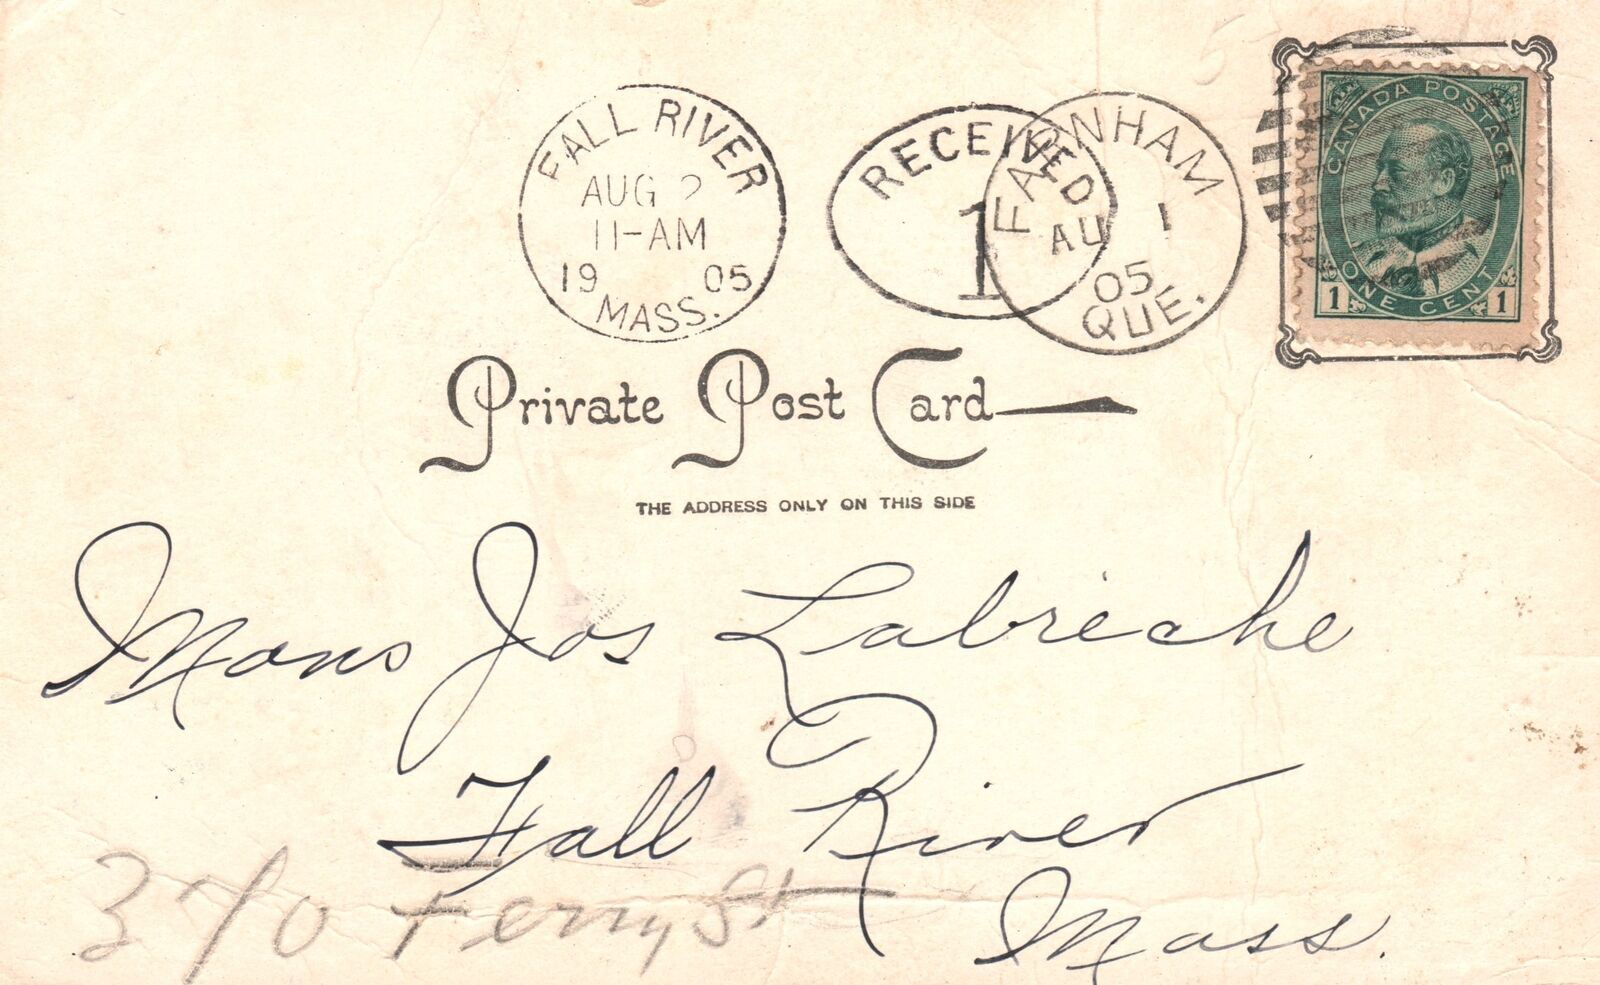 FALL RIVER
AUG 2
11-AM
19 05
MASS.
RECEIVED
1
FARNHAM
AU 1
05
QUE.
CANADA POSTAGE
1 ONE CENT 1
Private Post Card
THE ADDRESS ONLY ON THIS SIDE
Mons Jos Labrèche
Fall River
Mass.
370 Ferry St